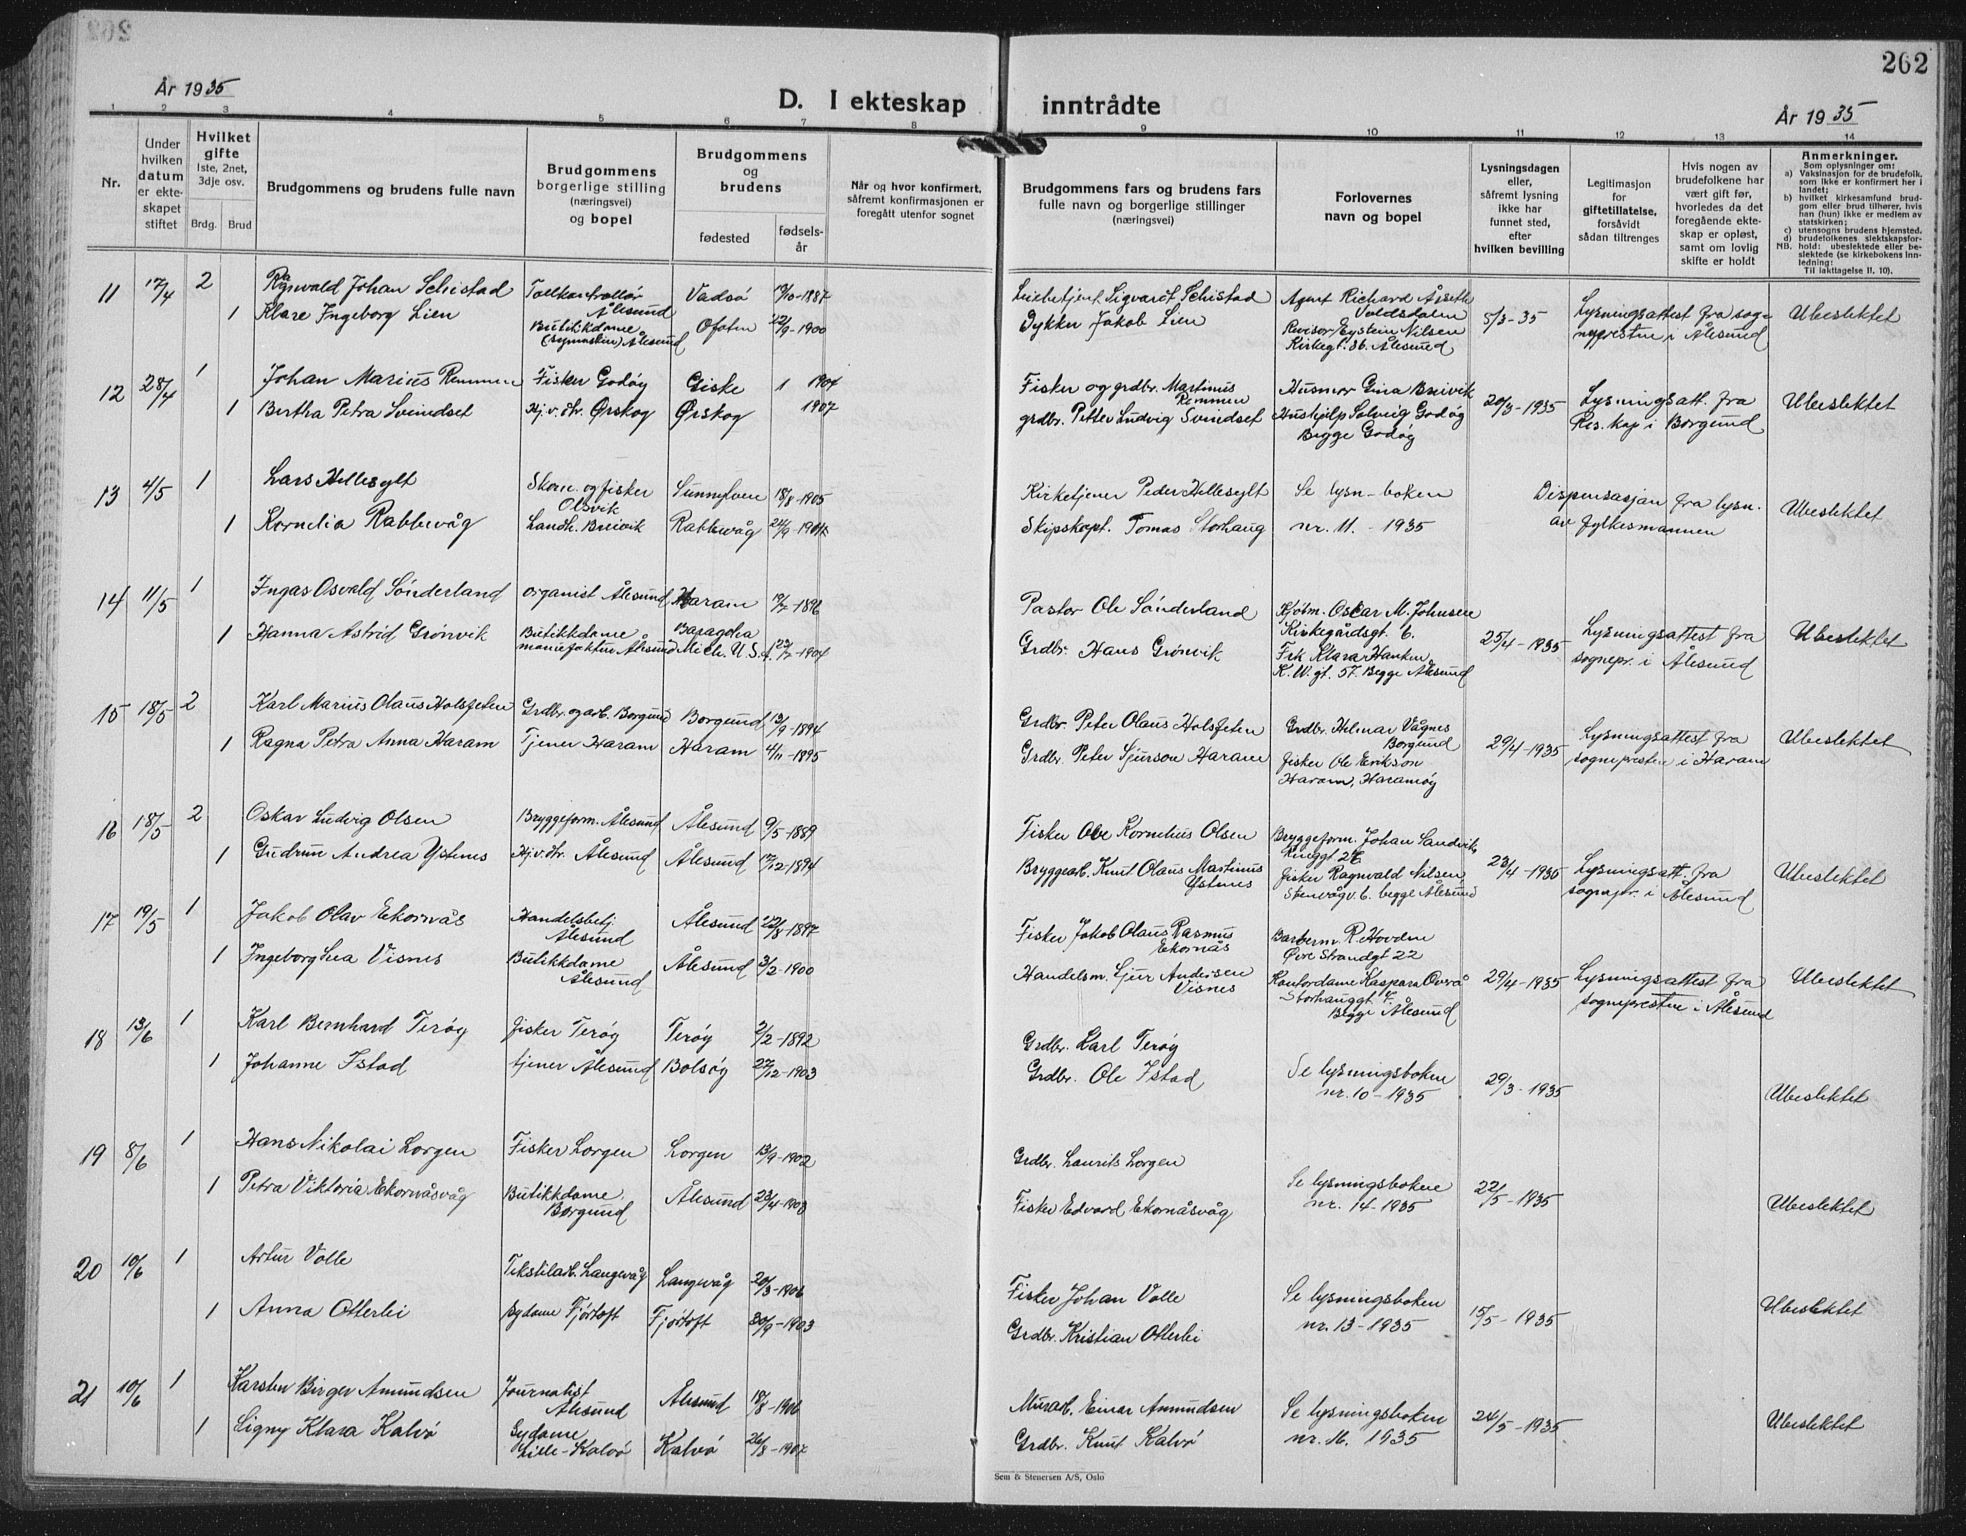 262
År 1935
D. I ekteskap inntrådte
År 1935
1 2 3 4 5 6 7 8 9 10 11 12 13 14
Nr.
Under hvilken datum er ekteskapet stiftet
Hvilket gifte
1ste, 2net, 3dje osv.
Brdg. Brud
Brudgommens og brudens fulle navn
Brudgommens borgerlige stilling (næringsvei) og bopel
Brudgommens og brudens
fødested
fødselsår
Når og hvor konfirmert, såfremt konfirmasjonen er foregått utenfor sognet
Brudgommens fars og brudens fars fulle navn og borgerlige stillinger (næringsvei)
Forlovernes navn og bopel
Lysningsdagen eller, såfremt lysning ikke har funnet sted, efter hvilken bevilling
Legitimasjon for giftetillatelse, forsåvidt sådan tiltrenges
Hvis nogen av brudefolkene har vært gift før, hvorledes da det foregående ekteskap er opløst, samt om lovlig skifte er holdt
Anmerkninger.
Som oplysninger om:
a) Vaksinasjon for de brudefolk, som ikke er konfirmert her i landet;
b) hvilket kirkesamfund brudgom eller brud tilhører, hvis han (hun) ikke er medlem av statskirken;
c) utensogns brudens hjemsted.
d) brudefolkenes slektskapsforhold: ubeslektede eller beslektede (se kirkebokens innledning:
NB.
Til iakttagelse II, 10).
11 17/4 2 Ragnvald Johan Schistad Tollkontrollør Ålesund Vadsø 19/10-1887 Sigvardt Schistad Agent Richard Åseth Voldsdalen
1 Klare Ingeborg Lien Butikkdame (symaskin) Ålesund Ofoten 22/9-1900 Dykker Jakob Lien Revisor Eystein Nilsen Kirkegt. 36. Ålesund 5/3-35 Lysningsattest fra sogneprestne i Ålesund Ubeslektet
12 28/4 1 Johan Marius Remmen Fisker Godøy Giske 1904 Fisker og grdbr. Martinus Remmen Husmor Gina Breivik
1 Bertha Petra Svindset Hj.v.dtr. Ørskog Ørskog 1907 grdbr. Petter Ludvig Svindset Hushjelp Solveig Godøy Begge Godøy 20/3-1935 Lysningsatt. fra Res. kap i Borgund Ubeslektet
13 4/5 1 Lars Hellesylt Skom. og fisker Olsvik Sunnylven 18/8-1905 Kirketjener Peder Hellesylt Se lysn-boken
1 Kornelia Rabbevåg Landh. Breivik Rabbevåg 24/9-1904 Skipskapt. Tomas Storhaug nr. 11. - 1935 Dispensasjon fra lysn. av fylkesmannen Ubeslektet
14 11/5 1 Ingas Osvald Sønderland organist Ålesund Haram 1896 Pastor Ole Sønderland Kjøbm. Oscar M. Johnsen Kirkegårdsgt. 6.
1 Hanna Astrid Grønvik Butikkdame manufaktur. Ålesund Baragoha Mich. U.S.A. 1904 Grdbr. Hans Grønvik Frk Klara Hanken K.W. gt. 57. Begge Ålesund 25/4-1935 Lysningsattest fra sognepr. i Ålesund Ubeslektet
15 18/5 2 Karl Marius Olaus Holsfeten Grdbr. og arb. Borgund Borgund 13/9-1894 Grdbr. Peter Olaus Holsfeten Grdbr. Hilmar Vågnes Borgund
1 Ragna Petra Anna Haram Tjener Haram Haram 4/11-1895 Grdbr. Peter Sjurson Haram fisker Ole Erikson Haram, Haramsøy 29/4-1935 Lysningsattest fra sognepresten i Haram Ubeslektet
16 18/5 2 Oskar Ludvig Olsen Bryggeform. Ålesund Ålesund 9/5-1889 Fisker Ole Kornelius Olsen Bryggeform. Johan Sandvik, Ringgt 27
1 Gudrun Andrea Ystenes Hj.v.dtr. Ålesund Ålesund 17/12-1894 Bryggearb. Knut Olaus Martinus Ystenes fisker Ragnvald Nilsen, Stenvågv. 6. begge Ålesund 23/4-1935 Lysningsatt. fra sognepr. i Ålesund Ubeslektet
17 19/5 1 Jakob Olav Ekornås Handelsbetj. Ålesund Ålesund 22/8-1897 Fisker Jakob Olaus Rasmus Ekornås Barberm. R. Hovden Øvre Strandgt 22
1 Ingeborg Lea Visnes Butikkdame Ålesund Ålesund 3/2-1900 Handelsm. Sjur Andersen Visnes Kontordame Kaspara Overå Storhauggt 7. Begge Ålesund 29/4-1935 Lysningsattest fra sogneprestne i Ålesund Ubeslektet
18 13/6 1 Karl Bernhard Terøy fisker Terøy Terøy 2/2-1892 Grdbr. Karl Terøy
1 Johanne Istad tjener Ålesund Bolsøy 27/12-1903 Grdbr. Ole Istad Se lysningsboken nr. 10-1935 29/3-1935 Ubeslektet
19 8/6 1 Hans Nikolai Lorgen Fisker Lorgen Lorgen 13/9-1902 Grdbr. Laurits Lorgen
1 Petra Viktoria Ekornåsvåg Butikkdame. Borgund Ålesund 23/4-1908 Fisker Edvard Ekornåsvåg Se lysningsboken nr. 14-1935 22/5-1935 Ubeslektet
20 10/6 1 Artur Volle Tekstilarb. Langevåg Langevåg 20/3-1906 Fisker Johan Volle Se lysningsboken
1 Anna Otterlei Sydame Fjørtoft Fjørtoft 30/9-1903 Grdbr. Kristian Otterlei nr. 13-1935 15/5-1935 Ubeslektet
21 10/6 1 Karsten Birger Amundsen Journalist Ålesund Ålesund 18/8-1906 Murarb. Einar Amundsen Se lysningsboken
1 Signy Klara Kalvø Sydame Lille-Kalvø Kalvø 26/8-1907 Grdbr. Knut Kalvø nr. 16. 1935 24/5-1935 Ubeslektet
Sem & Stenersen A/S, Oslo